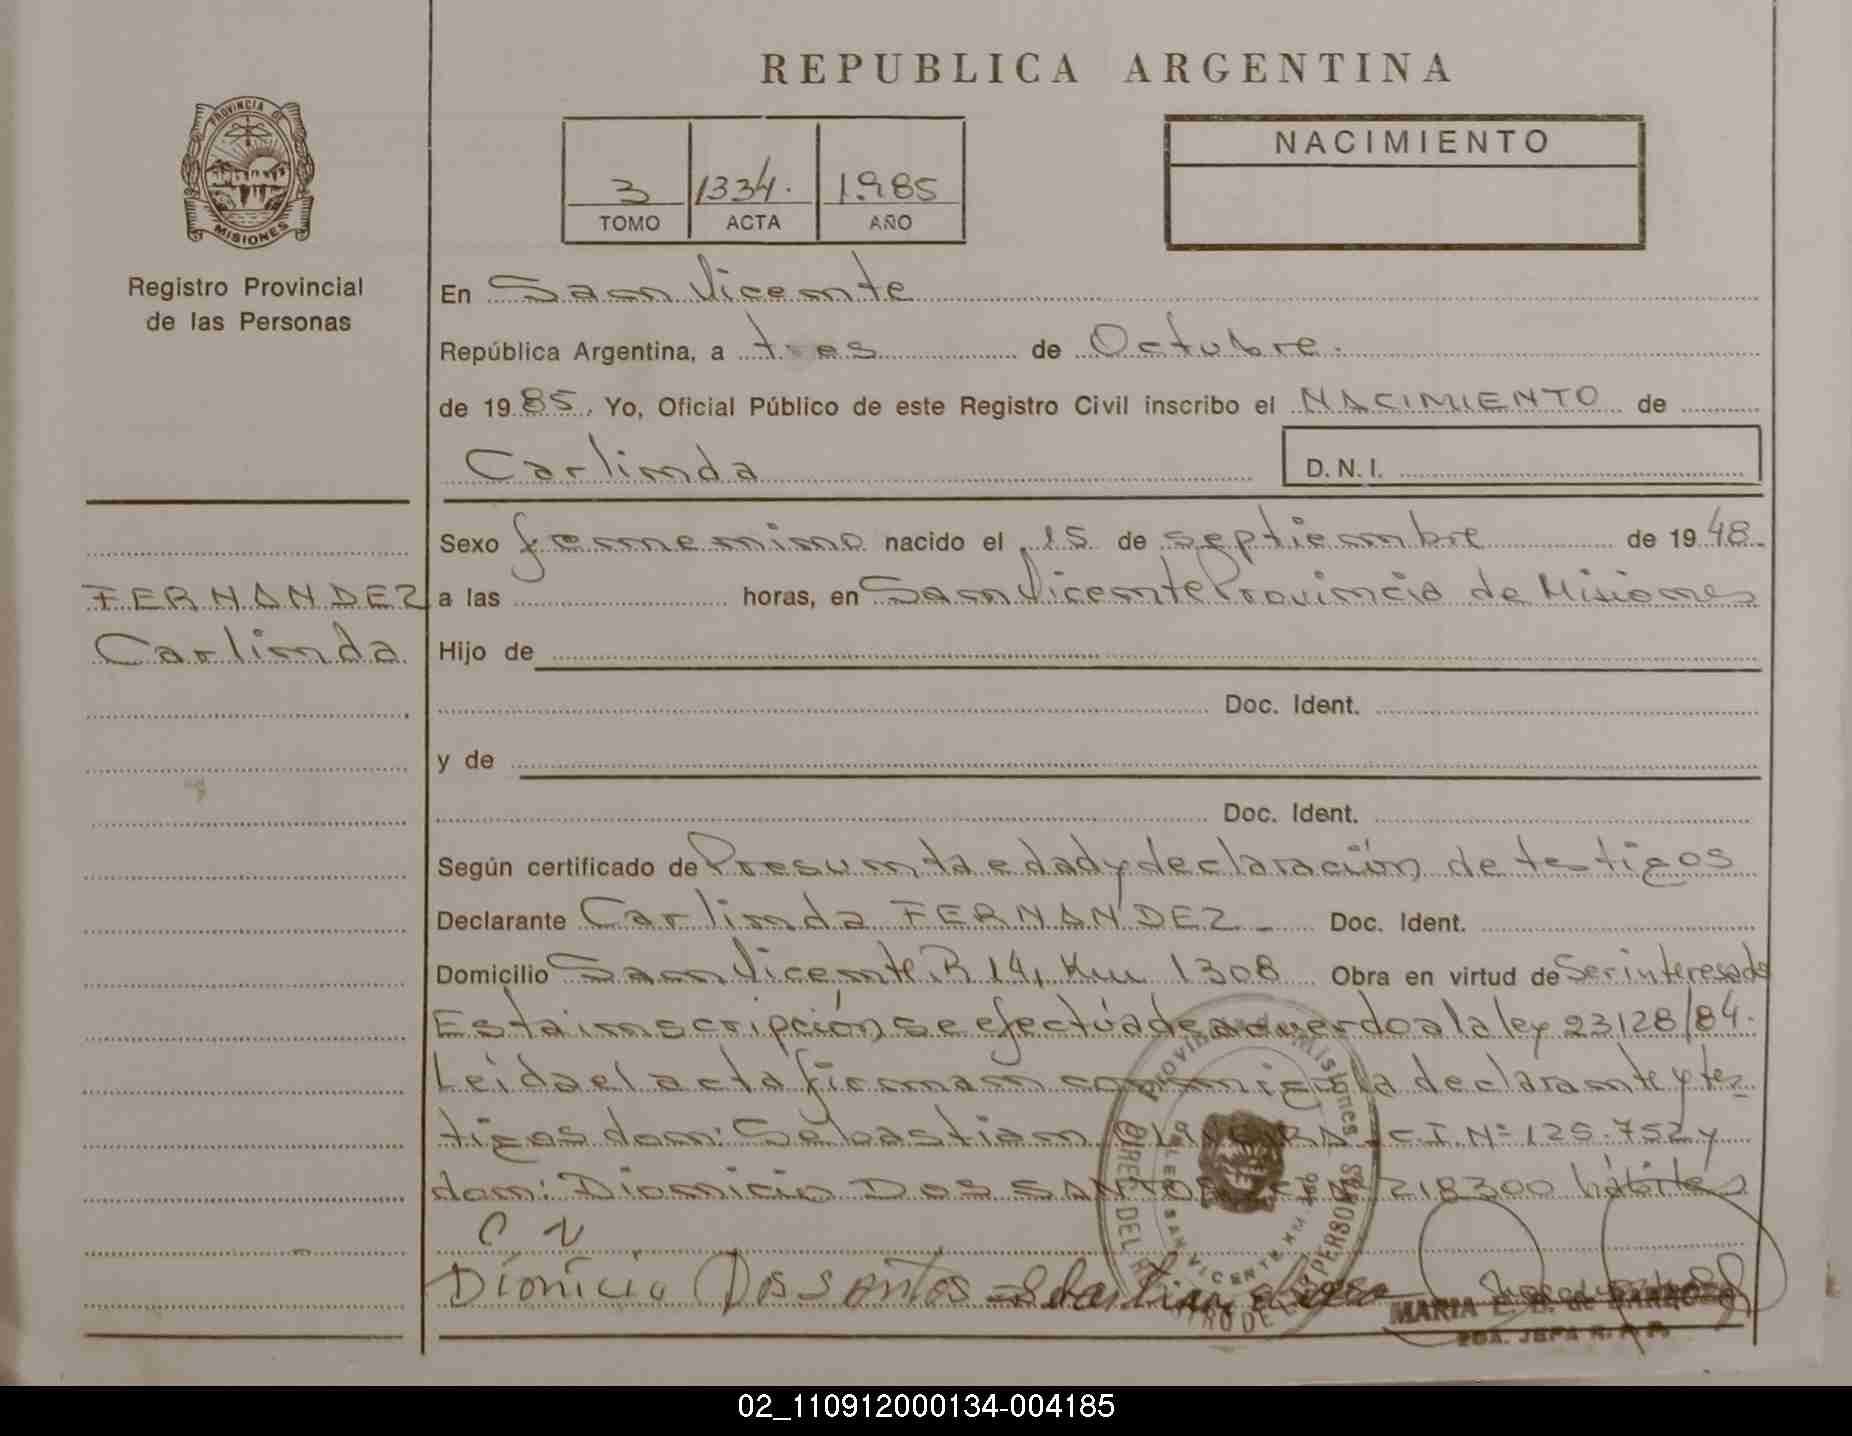 REPUBLICA ARGENTINA
PROVINCIA DE
MISIONES
Registro Provincial
de las Personas
3 1334. 1985
TOMO ACTA AÑO
NACIMIENTO
En San Vicente
República Argentina, a tres de Octubre.
de 1985, Yo, Oficial Público de este Registro Civil inscribo el NACIMIENTO de
Carlinda D.N.I.
FERNANDEZ
Carlinda
Sexo femenino nacido el 15 de septiembre de 1948.
a las horas, en San Vicente Provincia de Misiones
Hijo de
Doc. Ident.
y de
Doc. Ident.
Según certificado de Presunta edad y declaración de testigos
Declarante Carlinda FERNANDEZ Doc. Ident.
Domicilio San Vicente R 14, Km 1308 Obra en virtud de Ser interesado
Esta inscripción se efectúa de acuerdo a la ley 23128/84.
Leída el acta firman conmigo la declarante y tes-
tigos don: Sebastian C.I.Nº 125.752 y
don: Dionicio DOS SANTOS 218300 hábiles
C N
Dionício Dos santos Sebastian
MARIA E. B. de BARBOZA
2DA. JEFA R. P. P.
02_110912000134-004185